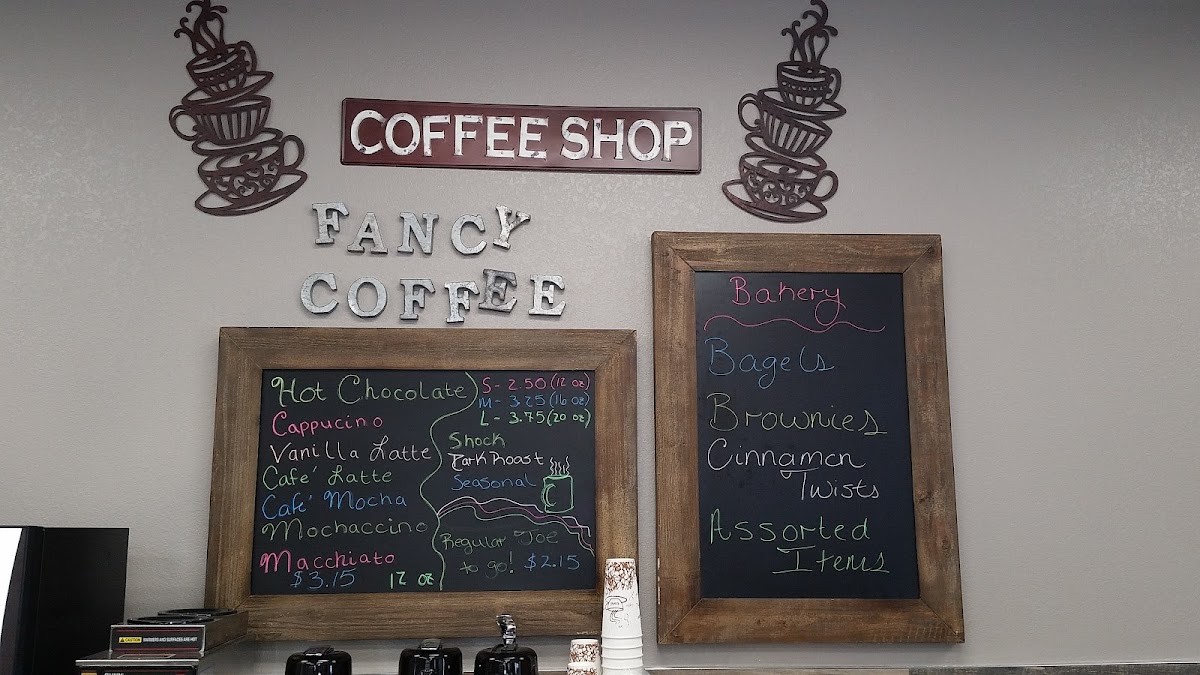 COFFEE SHOP
FANCY
COFFEE
Hot Chocolate
Cappucino
Vanilla Latte
Café Latte
Café Mocha
Mochaccino
Macchiato
$3.15 12 oz
S- 2.50 (12 oz)
M- 3.25 (16 oz)
L- 3.75 (20 oz)
Shock
Dark Roast
Seasonal
Regular Joe
to go! $2.15
Bakery
Bagels
Brownies
Cinnamon
Twists
Assorted
Items
CAUTION WARMERS AND SURFACES ARE HOT